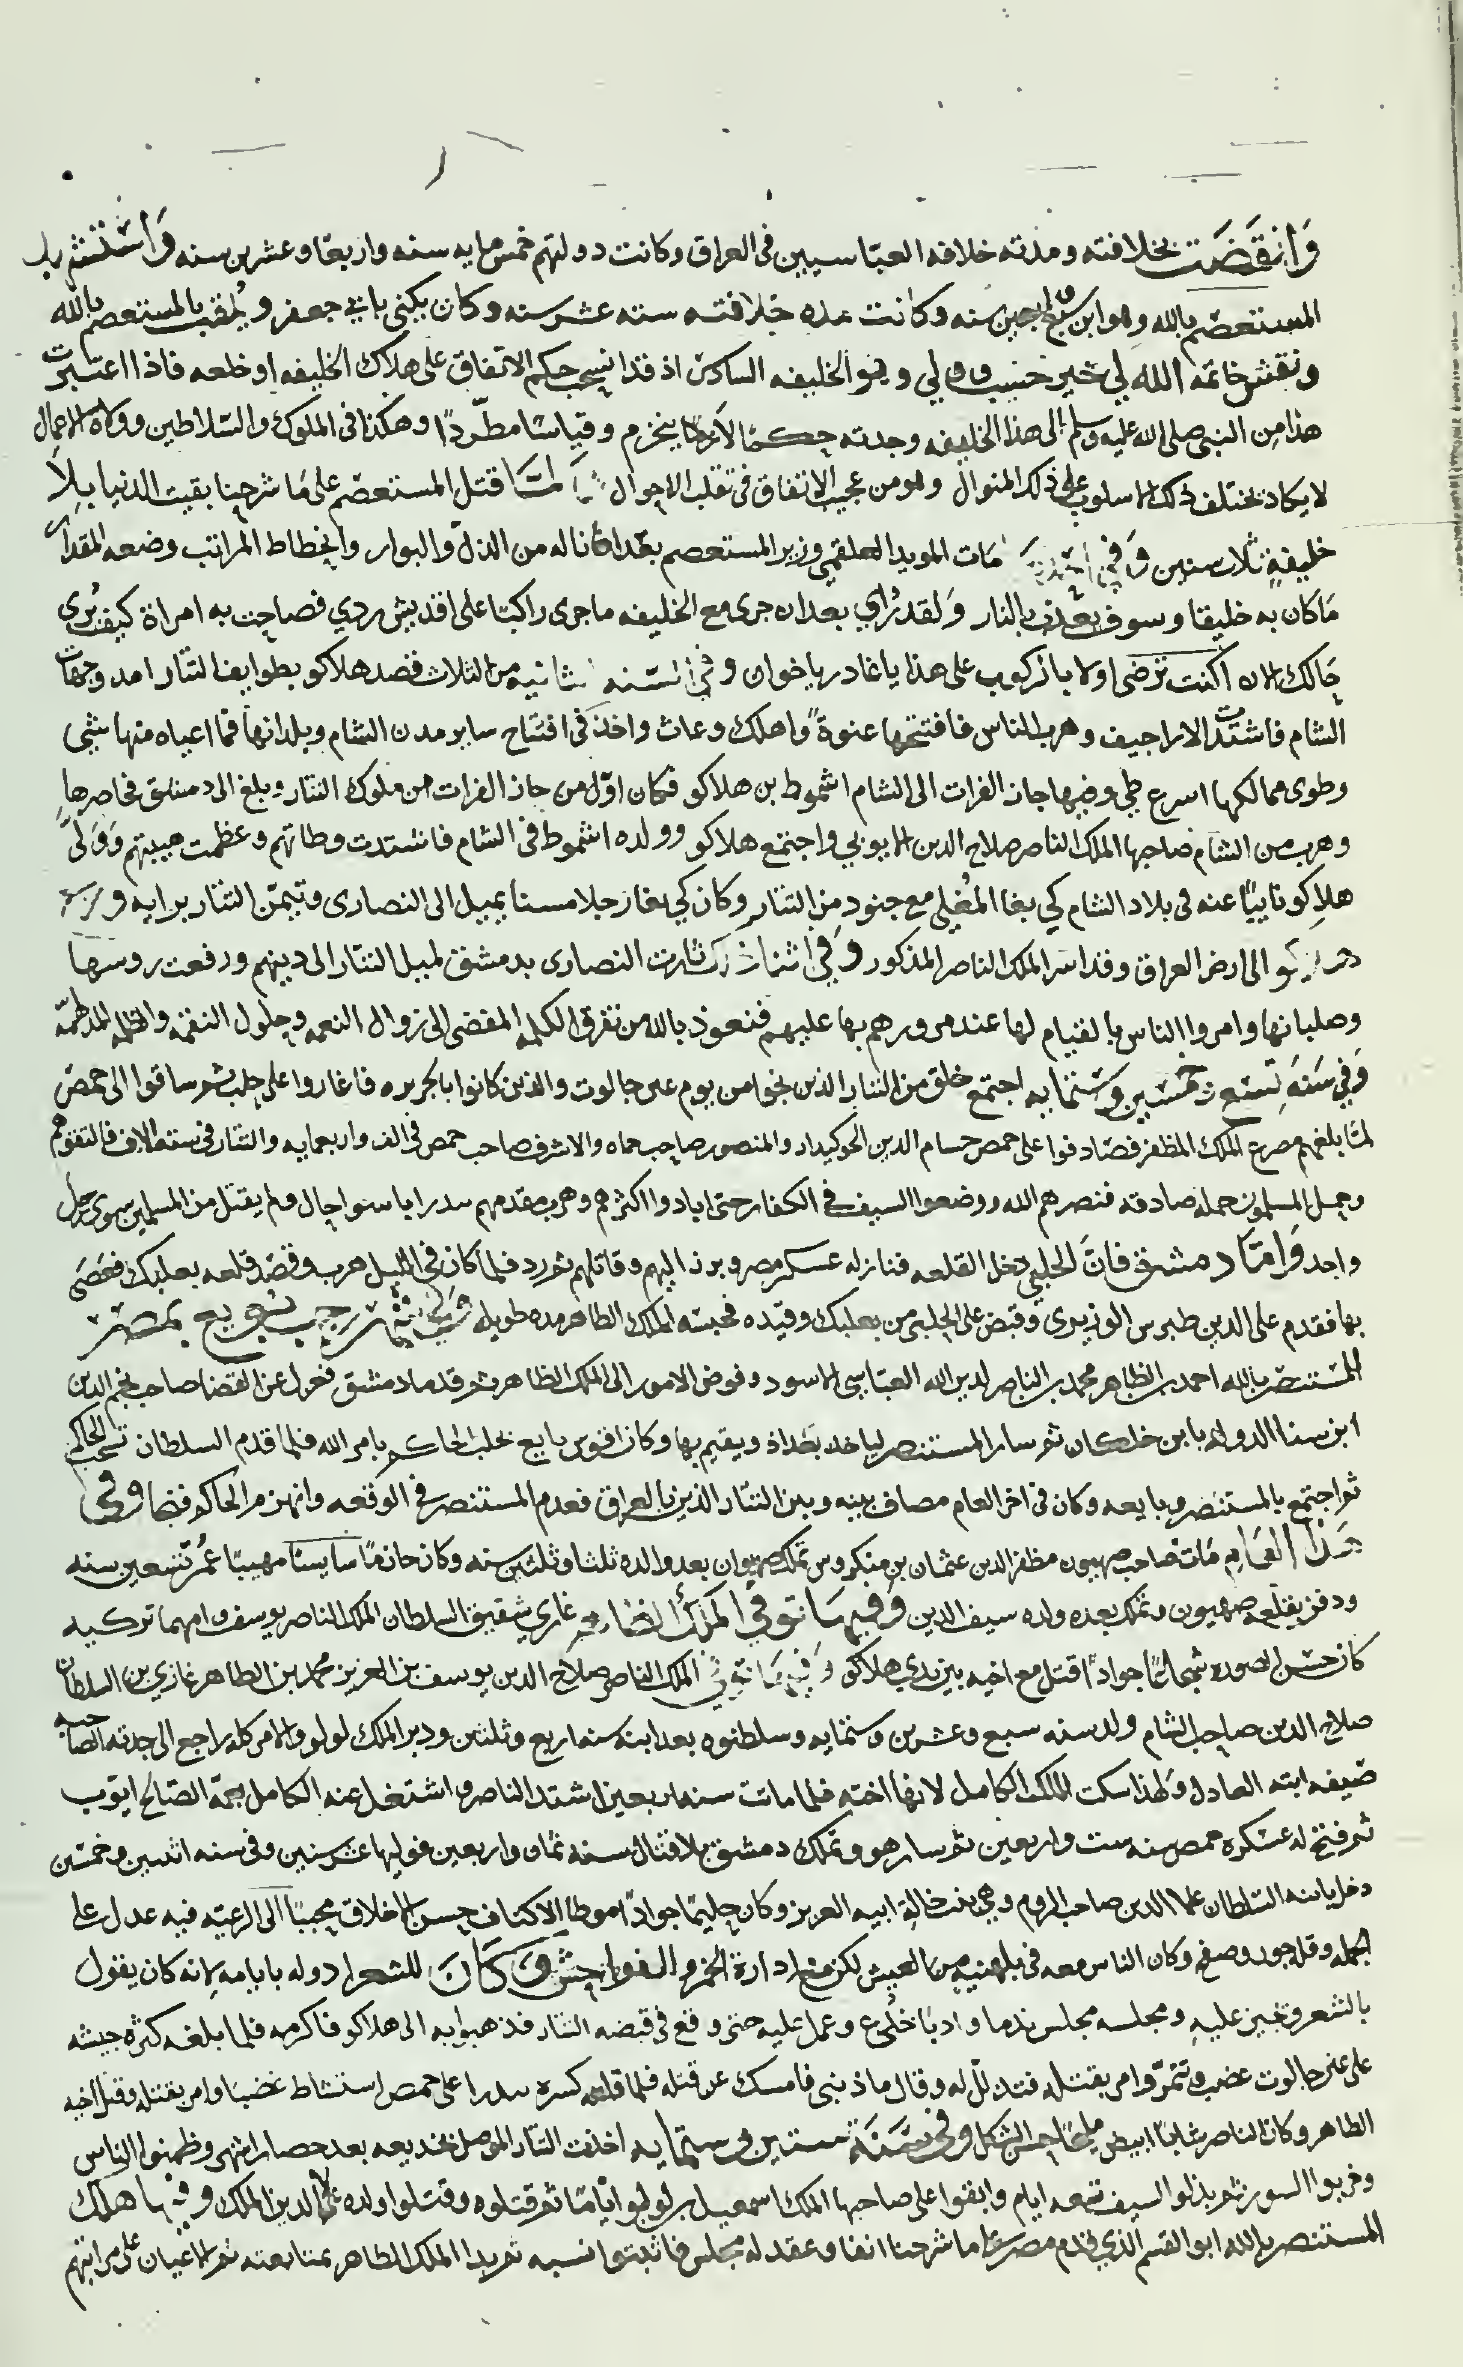 وانقضت بخلافته ومدته خلافه العباسيين في العراق وكانت دولتهم خمس مايه سنه واربعا وعشرين سنه واستشهد
المستعصم بالله وهو ابن سنه وكانت مده خلافته سته عشر سنه وكان يكنى بابي جعفر ويلقب بالمستعصم بالله
ونقش خاتمه الله لي خير حبيب وولي وهو الخليفه السادس اذ قد انسحب حكم الاتفاق على هلاك الخليفه او خلعه فاذا اعتبرت
هذا من النبي صلى الله عليه وسلم الى هذا الخليفه وجدته حكما لا ينخرم وقياسا مطردا وهكذا في الملوك والسلاطين وولاه الاعمال
لا يكاد يختلف ذلك الاسلوب على ذلك المنوال وهو من عجيب الاتفاق في تقلب الاحوال لما قتل المستعصم على ما شرحنا بقيت الدنيا بلا
خليفة ثلاث سنين وفي مات المويد العلقمي وزير المستعصم بعد ما ناله من الذل والبوار وانحطاط المراتب وضعه المقدار
ما كان به خليقا وسوف يعذب بالنار ولقد راي بعد ان جرى مع الخليفه ما جرى راكبا على اقديش ردي فصاحت به امراة كيف يرى
حالك الان اكنت ترضى اولا بالركوب على هذا يا غادر يا خوان وفي السنه الثانيه من الثلاث قصد هلاكو بطوايف التتار امد وجهات
الشام فاشتدت الاراجيف وهرب الناس فافتتحها عنوة واهلك وعاث واخذ في افتتاح ساير مدن الشام وبلدانها فما اعياه منها شي
وطوى ممالكها اسرع طي وفيها جاز الفرات الى الشام اشموط بن هلاكو فكان اول من جاز الفرات من ملوك التتار وبلغ الى دمشق فحاصرها
وهرب من الشام صاحبها الملك الناصر صلاح الدين الايوبي واجتمع هلاكو وولده اشموط في الشام فاشتدت وطاتهم وعظمت هيبتهم وولى
هلاكو نايبا عنه في بلاد الشام كي بغا المغلي مع جنود من التتار وكان كي بغا رجلا مسنا يميل الى النصارى وتيمن التتار برايه
الى ارض العراق وقد اسر الملك الناصر المذكور وفي اثنا ذلك ثارت النصارى بدمشق لميل التتار الى دينهم ورفعت روسها
وصلبانها وامروا الناس بالقيام لها عند مرورهم بها عليهم فنعوذ بالله من تفرق الكلمه المفضي الى زوال النعمه وحلول النقمه والظلمه المدلهمه
وفي سنة تسع وخمسين وستمايه اجتمع خلق من التتار الذين نجوا من يوم عين جالوت والذين كانوا بالجزيره فاغاروا على حلب ثم ساقوا الى حمص
لما بلغهم مصرع الملك المظفر فصادفوا على حمص حسام الدين الجوكندار والمنصور صاحب حماه والاشرف صاحب حمص في الف واربعمايه والتتار في سته الاف فالتقوهم
وحمل المسلمون حمله صادقه فنصرهم الله ووضعوا السيف في الكفار حتى ابادوا اكثرهم وهرب مقدمهم بيدرا باسوا حال ولم يقتل من المسلمين سوى رجل
واحد واما دمشق فان الحلبي دخل القلعه فنازله عسكر مصر وبرز اليهم وقاتلهم ثم رد فلما كان في الليل هرب وقصد قلعه بعلبك فعصى
بها فقدم على الدين طبرس الوزيري وقبض على الحلبي من بعلبك وقيده فحبسه الملك الظاهر مده طويله رجب بويع بمصر
المستنصر بالله احمد بن الظاهر محمد بن الناصر لدين الله العباسي الاسود وفوض الامور الى الملك الظاهر ثم قدما دمشق فعزل عن القضا صاحب نجم الدين
ابن سنا الدوله بابن خلكان ثم سار المستنصر لياخذ بغداد ويقيم بها وكان اقوس بايع بحلب الحاكم بامر الله فلما قدم السلطان تسحب الحاكم
ثم اجتمع بالمستنصر وبايعه وكان في اخر العام مصاف بينه وبين التتار الذين بالعراق فعدم المستنصر في الوقعه وانهزم الحاكم فنجا وفي
هذا العام مات صاحب صهيون مظفر الدين عثمان بن منكورس تملك صهيون بعد والده ثلثا وثلثين سنه وكان حازما سايسا مهيبا عمر تسعين سنه
ودفن بقلعه صهيون وتملك بعده ولده سيف الدين وفيها توفي الملك الظاهر غازي شقيق السلطان الملك الناصر يوسف وامهما تركيه
كان حسن الصوره شجاعا جوادا قتل مع اخيه بين يدي هلاكو وفيها توفي الملك الناصر صلاح الدين يوسف بن العزيز محمد بن الظاهر غازي بن السلطان
صلاح الدين صاحب الشام ولد سنه سبع وعشرين وستمايه وسلطنوه بعد ابيه سنه اربع وثلثين ودبر الملك لولو والامر كله راجع الى جدته الصاحبه
ضيفه ابنه العادل ولهذا سكت الملك الكامل لانها اخته فلما ماتت سنه اربعين اشتد الناصر واشتغل عنه الكامل بعمه الصالح ايوب
ثم فتح له عسكره حمص سنه ست واربعين ثم سار هو وتملك دمشق بلا قتال سنه ثمان واربعين فوليها عشر سنين وفي سنه اثنين وخمسين
دخل بابنه السلطان علا الدين صاحب الروم وهي بنت خالة ابيه العزيز وكان حليما جوادا موطا الاكناف حسن الاخلاق محببا الى الرعيه فيه عدل على
الجمله وقله جور وصفح وكان الناس معه في بلهنيه من العيش لكن مع ادارة الخمر والفواحش وكان للشعرا دوله بايامه لانه كان يقول
بالشعر ويجيز عليه ومجلسه مجلس ندما وادبا خدع وعمل عليه حتى وقع في قبضه التتار فذهبوا به الى هلاكو فاكرمه فلما بلغه كثره جيشه
على عين جالوت غضب وتنمر وامر بقتله فتذلل له وقال ما ذنبي فامسك عن قتله فلما بلغه كسره بيدرا على حمص استشاط غضبا وامر بقتله وقتل اخيه
الظاهر وكان الناصر شابا ابيض مليحا حسن الشكل وفي سنة ستين وستمايه اخذت التتار الموصل بخديعه بعد حصار اشهر وطمنوا الناس
وخربوا السور ثم بذلوا السيف تسعه ايام وابقوا على صاحبها الملك اسمعيل بن لولو اياما ثم قتلوه وقتلوا ولده علا الدين الملك وفيها هلك
المستنصر بالله ابو القسم الذي قدم مصر على ما شرحنا انفا وعقد له مجلس فاثبتوا نسبه ثم بدا الملك الظاهر بمتابعته ثم الاعيان على مراتبهم